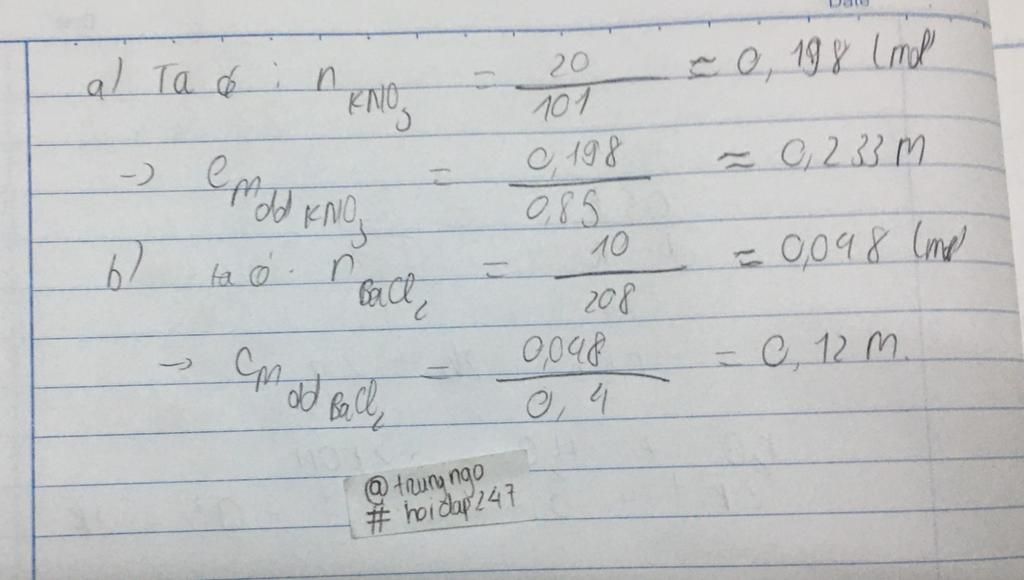 Date
a) Ta có : n KNO3 = 20/101 ≈ 0,198 (mol
-> CM dd KNO3 = 0,198/0,85 ≈ 0,233 M
b) ta có . n BaCl2 = 10/208 ≈ 0,048 (mol
-> CM dd BaCl2 = 0,048/0,4 = 0,12 M.
@trungngo
# hoidap247